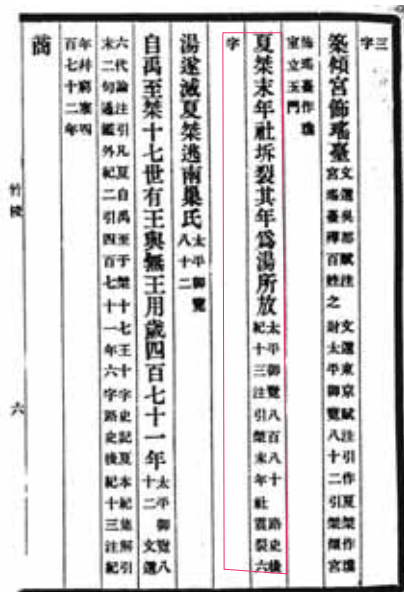 三
字
築傾宮飾瑤臺
文選吳都賦注 文選東京賦注引作夏桀作瓊
宮瑤臺殫百姓之財太平御覽八十二作引桀傾宮
飾瑤臺作瓊
室立玉門
夏桀末年社坼裂其年爲湯所放
太平御覽八百八十 路史後
紀十三注引桀末年社震裂六
字
湯遂滅夏桀逃南巢氏
太平御覽
八十二
自禹至桀十七世有王與無王用歲四百七十一年
太平御覽八
十二 文選
六代論注引凡夏自禹至于桀十七王十字史記夏本紀集解引
末二句通鑑外紀二引四百七十一年六字路史後紀十三注紀
年幷窮寒四
百七十二年
商
竹校
六